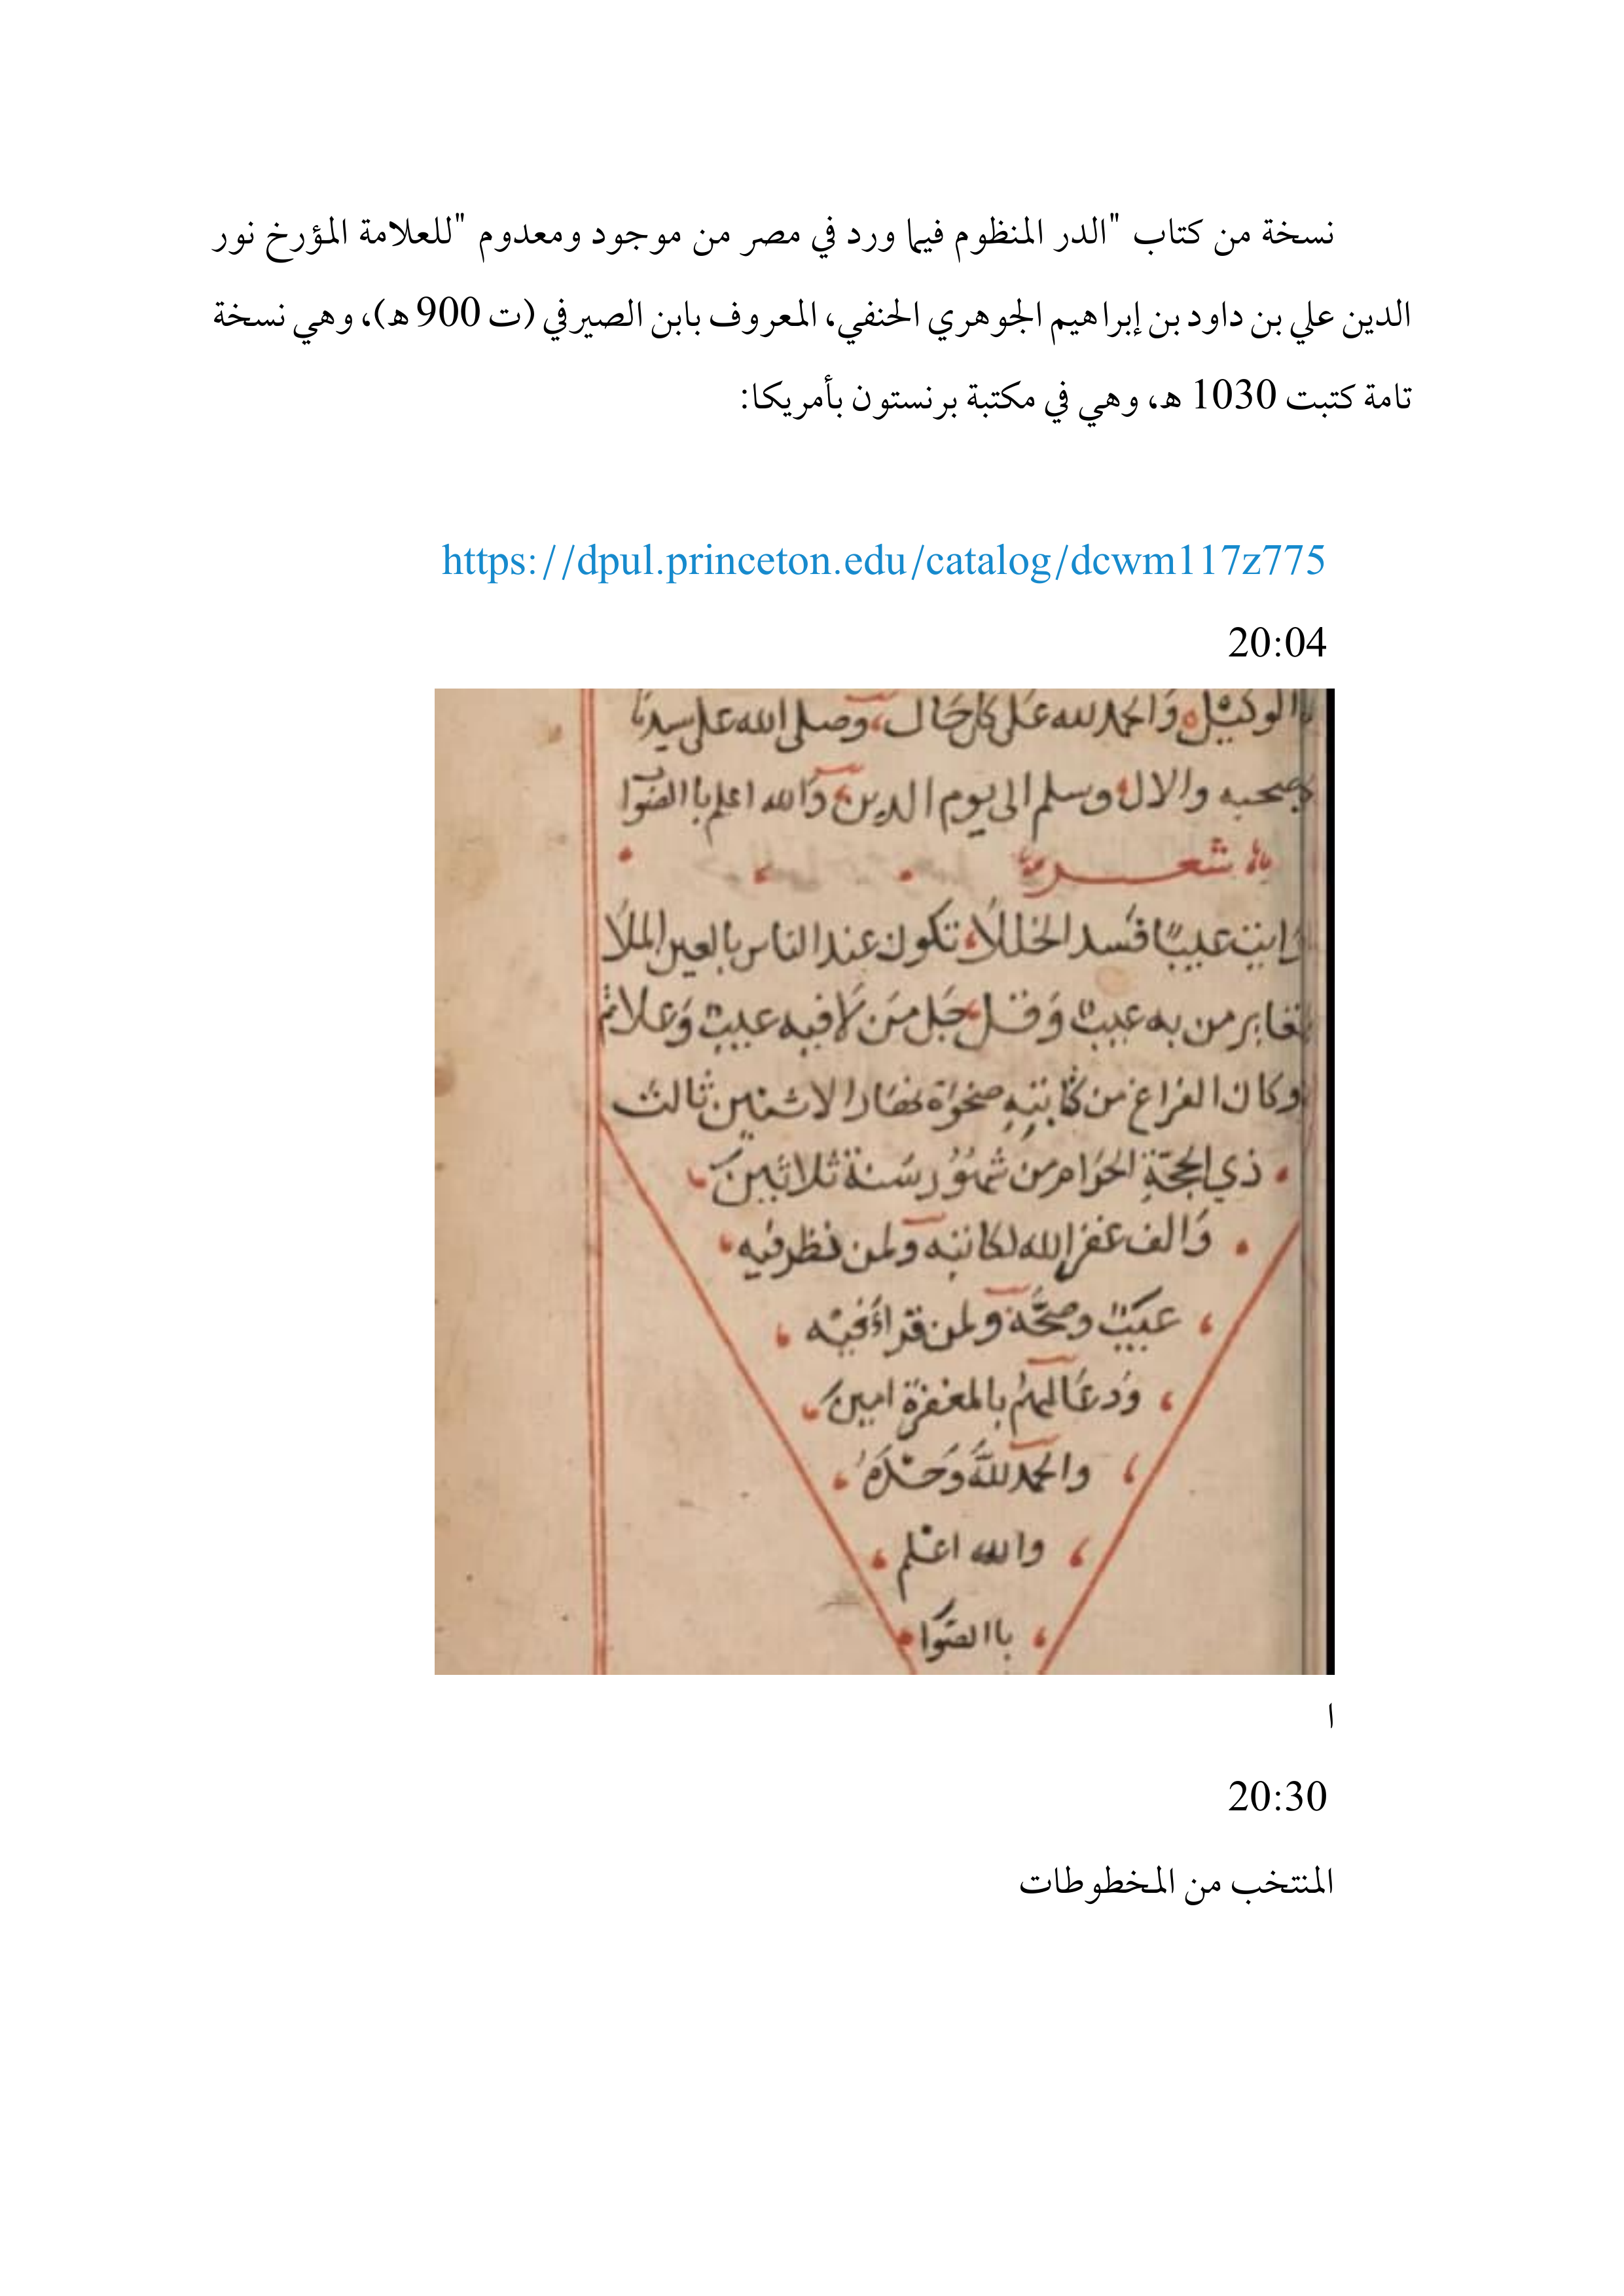 نسخة من كتاب "الدر المنظوم فيما ورد في مصر من موجود ومعدوم "للعلامة المؤرخ نور
الدين علي بن داود بن إبراهيم الجوهري الحنفي، المعروف بابن الصيرفي (ت 900 هـ)، وهي نسخة
تامة كتبت 1030 هـ، وهي في مكتبة برنستون بأمريكا:
https://dpul.princeton.edu/catalog/dcwm117z775
20:04
الوكيل والحمد لله على كل حال وصلى الله على سيدنا
وصحبه والال وسلم الى يوم الدين والله اعلم باالصوا
شعر
عيبًا فسد الخللا تكون عند الناس بالعين الملا
من به عيب وقل جل من لا فيه عيب وعلا
وكان الفراغ من كتابته صحوة نهار الاثنين ثالث
ذي الحجة الحرام من شهور سنة ثلاثين
والف غفر الله لكاتبه ولمن نظر فيه
عيب وصحه ولمن قرا
ودعا لهم بالمغفرة امين
والحمد لله وحده
والله اعلم
باالصوا
ا
20:30
المنتخب من المخطوطات